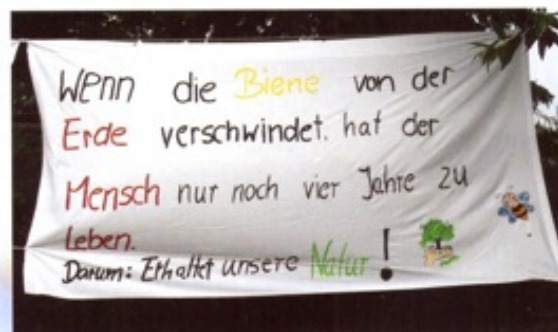 Wenn die Biene von der
Erde verschwindet. hat der
Mensch nur noch vier Jahre zu
Leben.
Darum: Erhaltet unsere Natur!